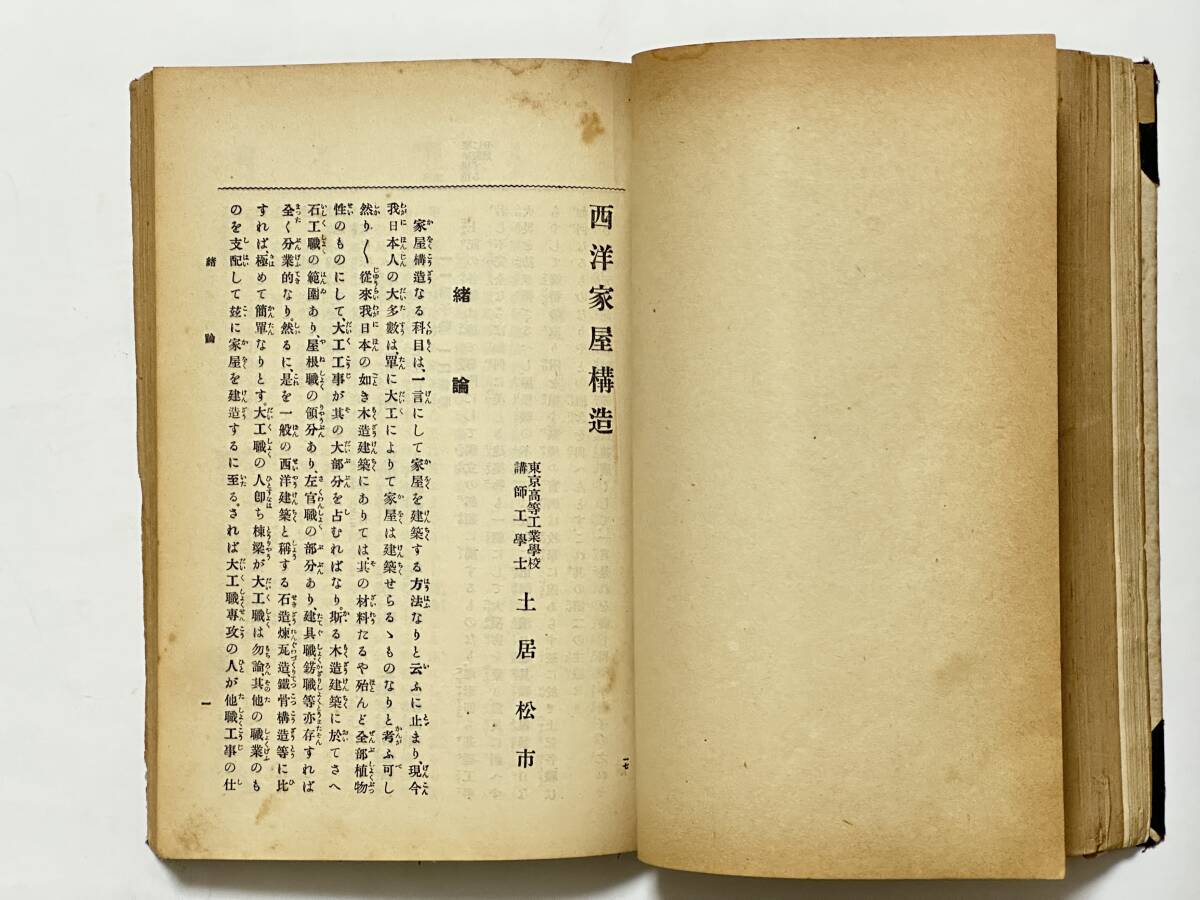 西洋家屋構造
東京高等工業學校
講師工學士
土居松市
緒論
家屋構造なる科目は、一言にして家屋を建築する方法なりと云ふに止まり、現今
我日本人の大多數は、單に大工によりて家屋は建築せらるゝものなりと考ふ可し
然り〳〵從來我日本の如き木造建築にありては、其の材料たるや殆んど全部植物
性のものにして、大工工事が其の大部分を占むればなり。斯る木造建築に於てさへ
石工職の範圍あり、屋根職の領分あり、左官職の部分あり、建具職錺職等亦存すれば
全く分業的なり。然るに、是を一般の西洋建築と稱する石造、煉瓦造、鐵骨構造等に比
すれば、極めて簡單なりとす。大工職の人卽ち棟梁が大工職は勿論、其他の職業のも
のを支配して玆に家屋を建造するに至る。されば大工職專攻の人が他職工事の仕
緒論
一